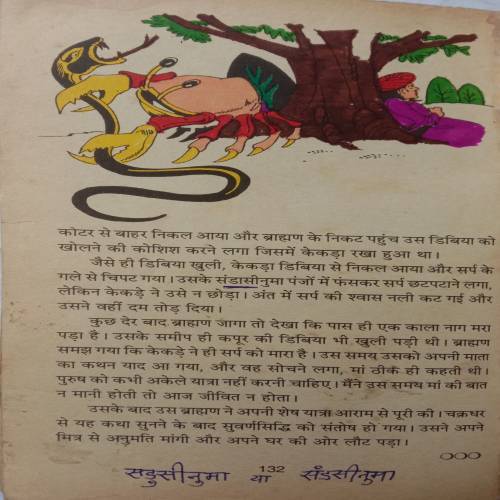 कोटर से बाहर निकल आया और ब्राह्मण के निकट पहुंच उस डिबिया को
खोलने की कोशिश करने लगा जिसमें केकड़ा रखा हुआ था।
जैसे ही डिबिया खुली, केकड़ा डिबिया से निकल आया और सर्प के
गले से चिपट गया। उसके संडासीनुमा पंजों में फंसकर सर्प छटपटाने लगा,
लेकिन केकड़े ने उसे न छोड़ा। अंत में सर्प की श्वास नली कट गई और
उसने वहीं दम तोड़ दिया।
कुछ देर बाद ब्राह्मण जागा तो देखा कि पास ही एक काला नाग मरा
पड़ा है। उसके समीप ही कपूर की डिबिया भी खुली पड़ी थी। ब्राह्मण
समझ गया कि केकड़े ने ही सर्प को मारा है। उस समय उसको अपनी माता
का कथन याद आ गया, और वह सोचने लगा, मां ठीक ही कहती थी।
पुरुष को कभी अकेले यात्रा नहीं करनी चाहिए। मैंने उस समय मां की बात
न मानी होती तो आज जीवित न होता।
उसके बाद उस ब्राह्मण ने अपनी शेष यात्रा आराम से पूरी की। चक्रधर
से यह कथा सुनने के बाद सुवर्णसिद्धि को संतोष हो गया। उसने अपने
मित्र से अनुमति मांगी और अपने घर की ओर लौट पड़ा।
132
सडुसीनुमा या संडसीनुमा